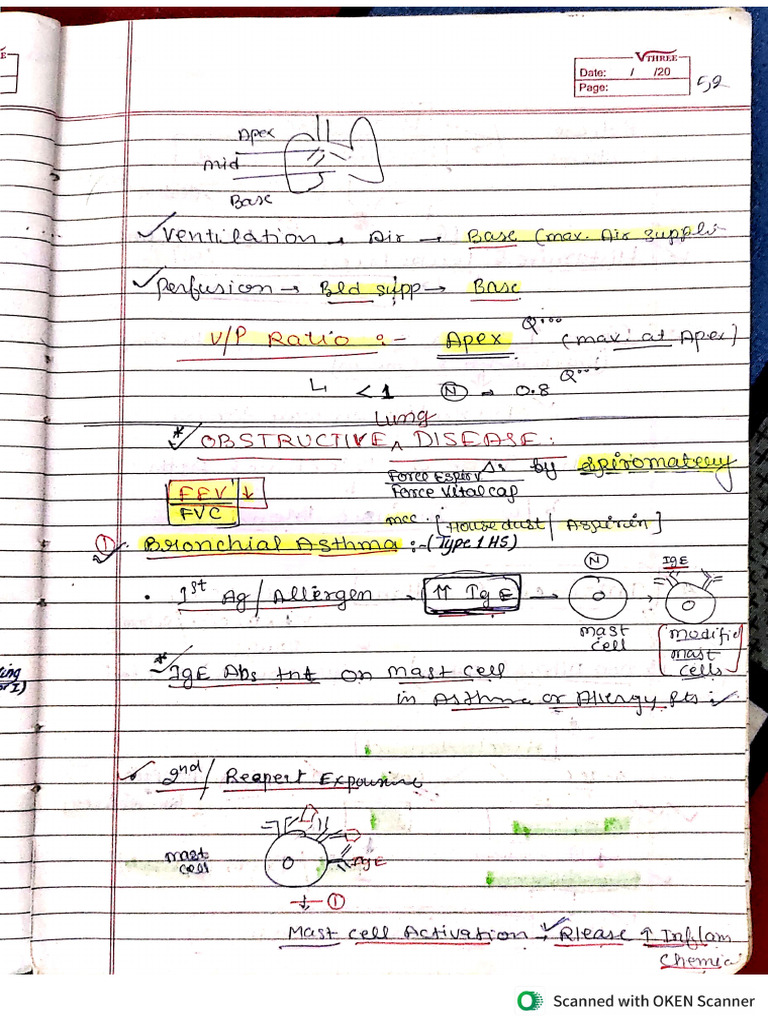 VTHREE
Date: / /20
Page:
52
Apex
mid
Base
Ventilation → Air → Base (max. Air suppli
Perfusion → Bld supp → Base
V/P Ratio :- Apex Q... (max. at Apex)
↳ < 1 (N) → 0.8 Q...
Lung
* OBSTRUCTIVE ^ DISEASE :
Δs by spiromateruy
FEV ↓
FVC
Force Expirv
Force Vital cap
mcc. [House dust / Aspirin]
① Bronchial Asthma :- (Type 1 HS)
• 1st Ag / Allergen → ↑↑ IgE → (N) IgE
mast cell
[modifie mast cells]
* IgE Abs tnt on mast cell
in Asthma or Allergy Pts :
2nd / Reapert Exposure
mast cell
IgE
↓ ①
Mast cell Activation → Rlease ↑ Inflam
chemica
Scanned with OKEN Scanner